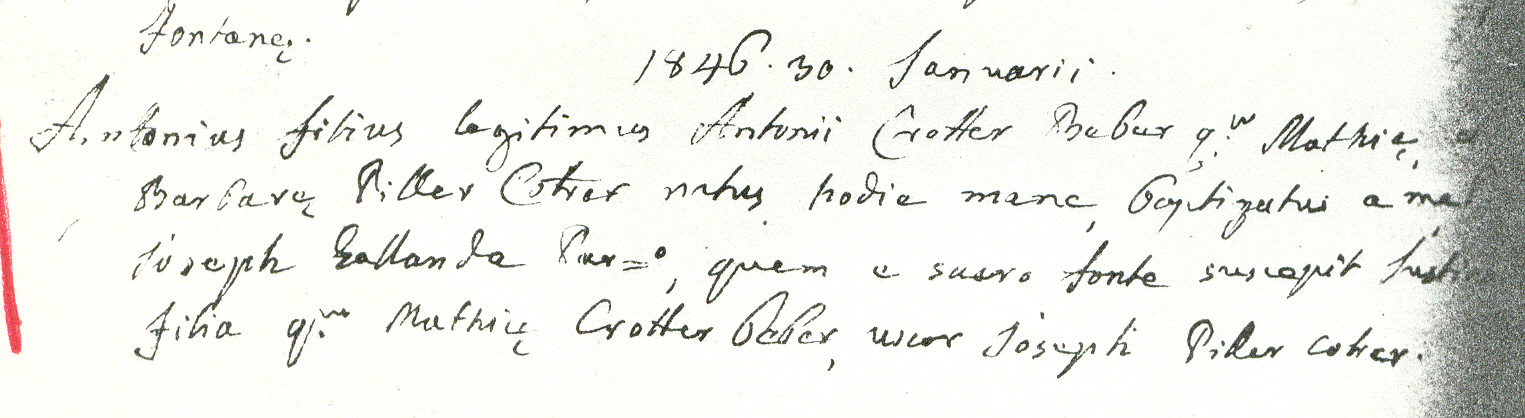 Fontanę.
1846. 30. Januarii.
Antonius filius legitimus Antonii Crotter Bebar q.m Mathię,
Barbarę Piller Cotrer natus hodie mane, baptizatus a me
Joseph Gallanda Par=o, quem e sacro fonte suscepit
filia q.m Mathię Crotter beber, uxor Joseph Piller cotrer.